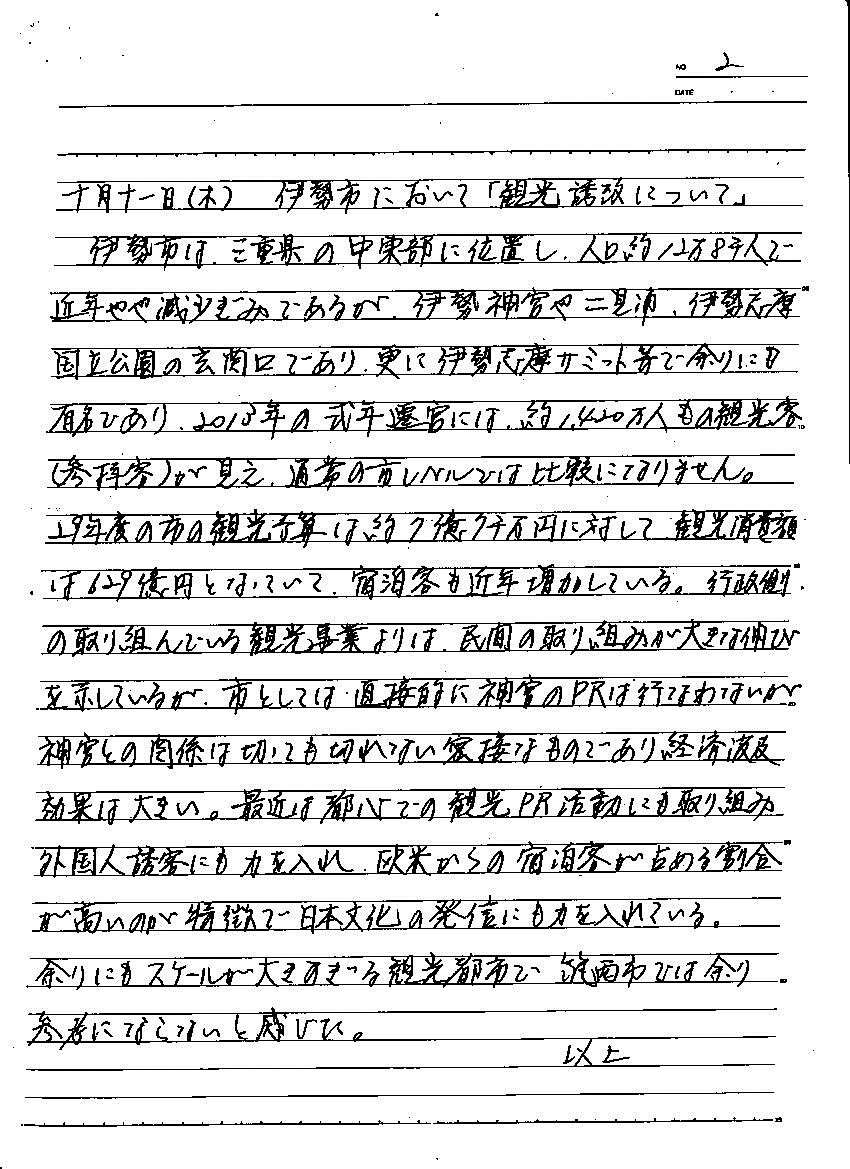 NO 2
DATE
十月十一日(木) 伊勢市において「観光誘致について」
伊勢市は、三重県の中東部に位置し、人口約12万8千人で
近年やや減少ぎみであるが、伊勢神宮や二見浦、伊勢志摩
国立公園の玄関口であり、更に伊勢志摩サミット等で余りにも
有名であり、2013年の式年遷宮には、約1,420万人もの観光客
(参拝客)が見え、通常の市レベルでは比較になりません。
29年度の市の観光予算は約7億7千万円に対して、観光消費額
は629億円となっていて、宿泊客も近年増加している。行政側
の取り組んでいる観光事業よりは、民間の取り組みが大きな伸び
を示しているが、市としては直接的に神宮のPRは行なわないが、
神宮との関係は切っても切れない密接なものであり経済波及
効果は大きい。最近は都心での観光PR活動にも取り組み
外国人誘客にも力を入れ、欧米からの宿泊客が占める割合
が高いのが特徴で「日本文化」の発信にも力を入れている。
余りにもスケールが大きすぎる観光都市で、筑西市では余り
参考にならないと感じた。
以上